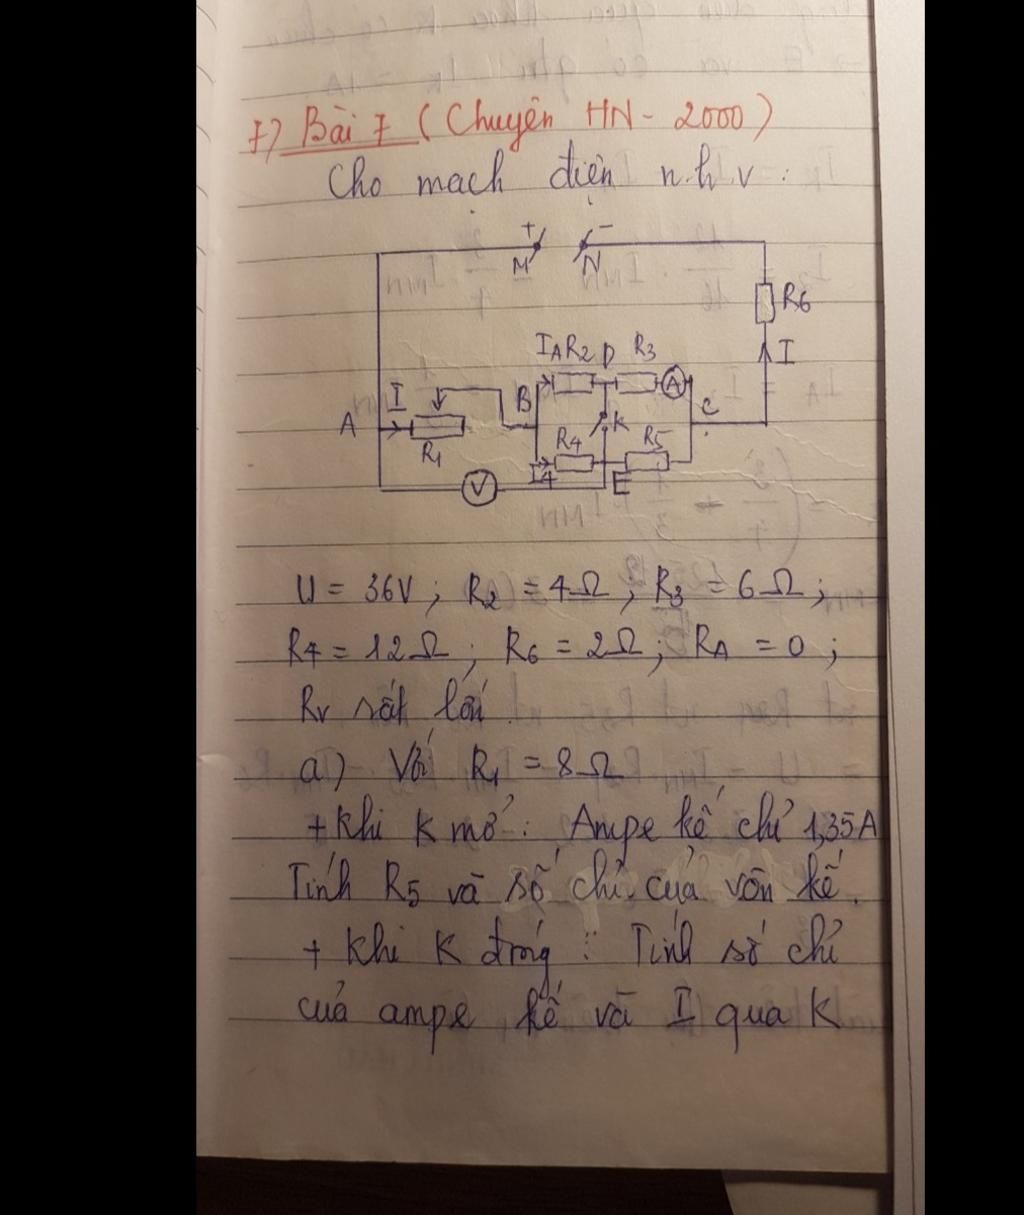 7) Bài 7 ( Chuyên HN - 2000 )
Cho mạch điện n.h.v :
+ -
M N
R6
IA R2 D R3
I
A I B A C
K
R1 R4 R5
I4
V E
U = 36V ; R2 = 4Ω ; R3 = 6Ω ;
R4 = 12Ω ; R6 = 2Ω ; RA = 0 ;
Rv rất lớn
a) Với R1 = 8Ω
+ Khi K mở : Ampe kế chỉ 1,35A
Tính R5 và số chỉ của vôn kế.
+ Khi K đóng : Tính số chỉ
của ampe kế và I qua K